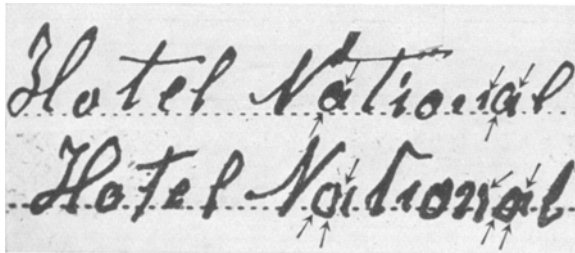 Hotel National
Hotel National